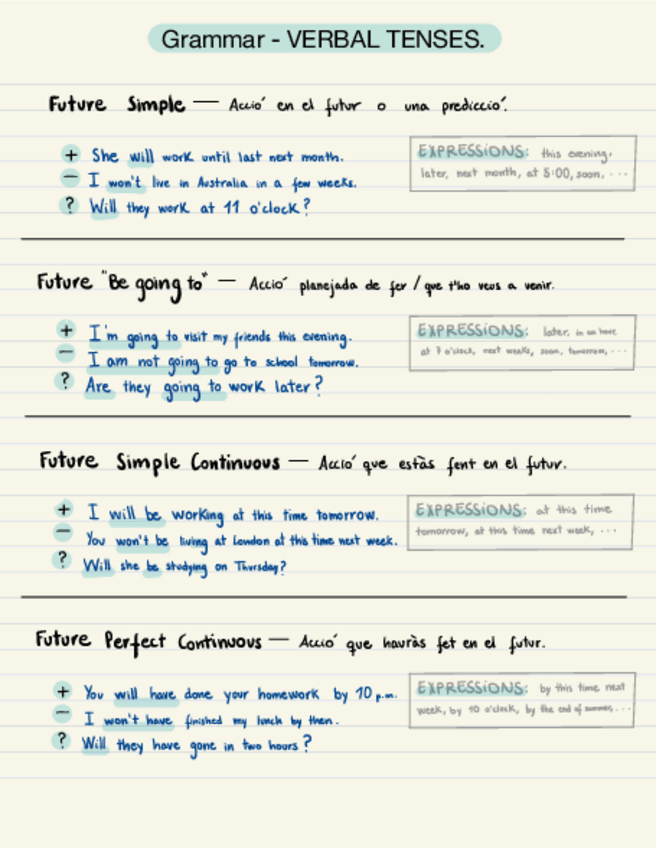 Grammar - VERBAL TENSES.
Future Simple — Acció en el futur o una predicció.
+ She will work until last next month.
− I won't live in Australia in a few weeks.
? Will they work at 11 o'clock?
EXPRESSIONS: this evening,
later, next month, at 5:00, soon, ...
Future "Be going to" — Acció planejada de fer / que t'ho veus a venir.
+ I'm going to visit my friends this evening.
− I am not going to go to school tomorrow.
? Are they going to work later?
EXPRESSIONS: later, in an hour,
at 7 o'clock, next weeks, soon, tomorrow, ...
Future Simple Continuous — Acció que estàs fent en el futur.
+ I will be working at this time tomorrow.
− You won't be living at London at this time next week.
? Will she be studying on Thursday?
EXPRESSIONS: at this time
tomorrow, at this time next week, ...
Future Perfect Continuous — Acció que hauràs fet en el futur.
+ You will have done your homework by 10 p.m.
− I won't have finished my lunch by then.
? Will they have gone in two hours?
EXPRESSIONS: by this time next
week, by 10 o'clock, by the end of summer, ...